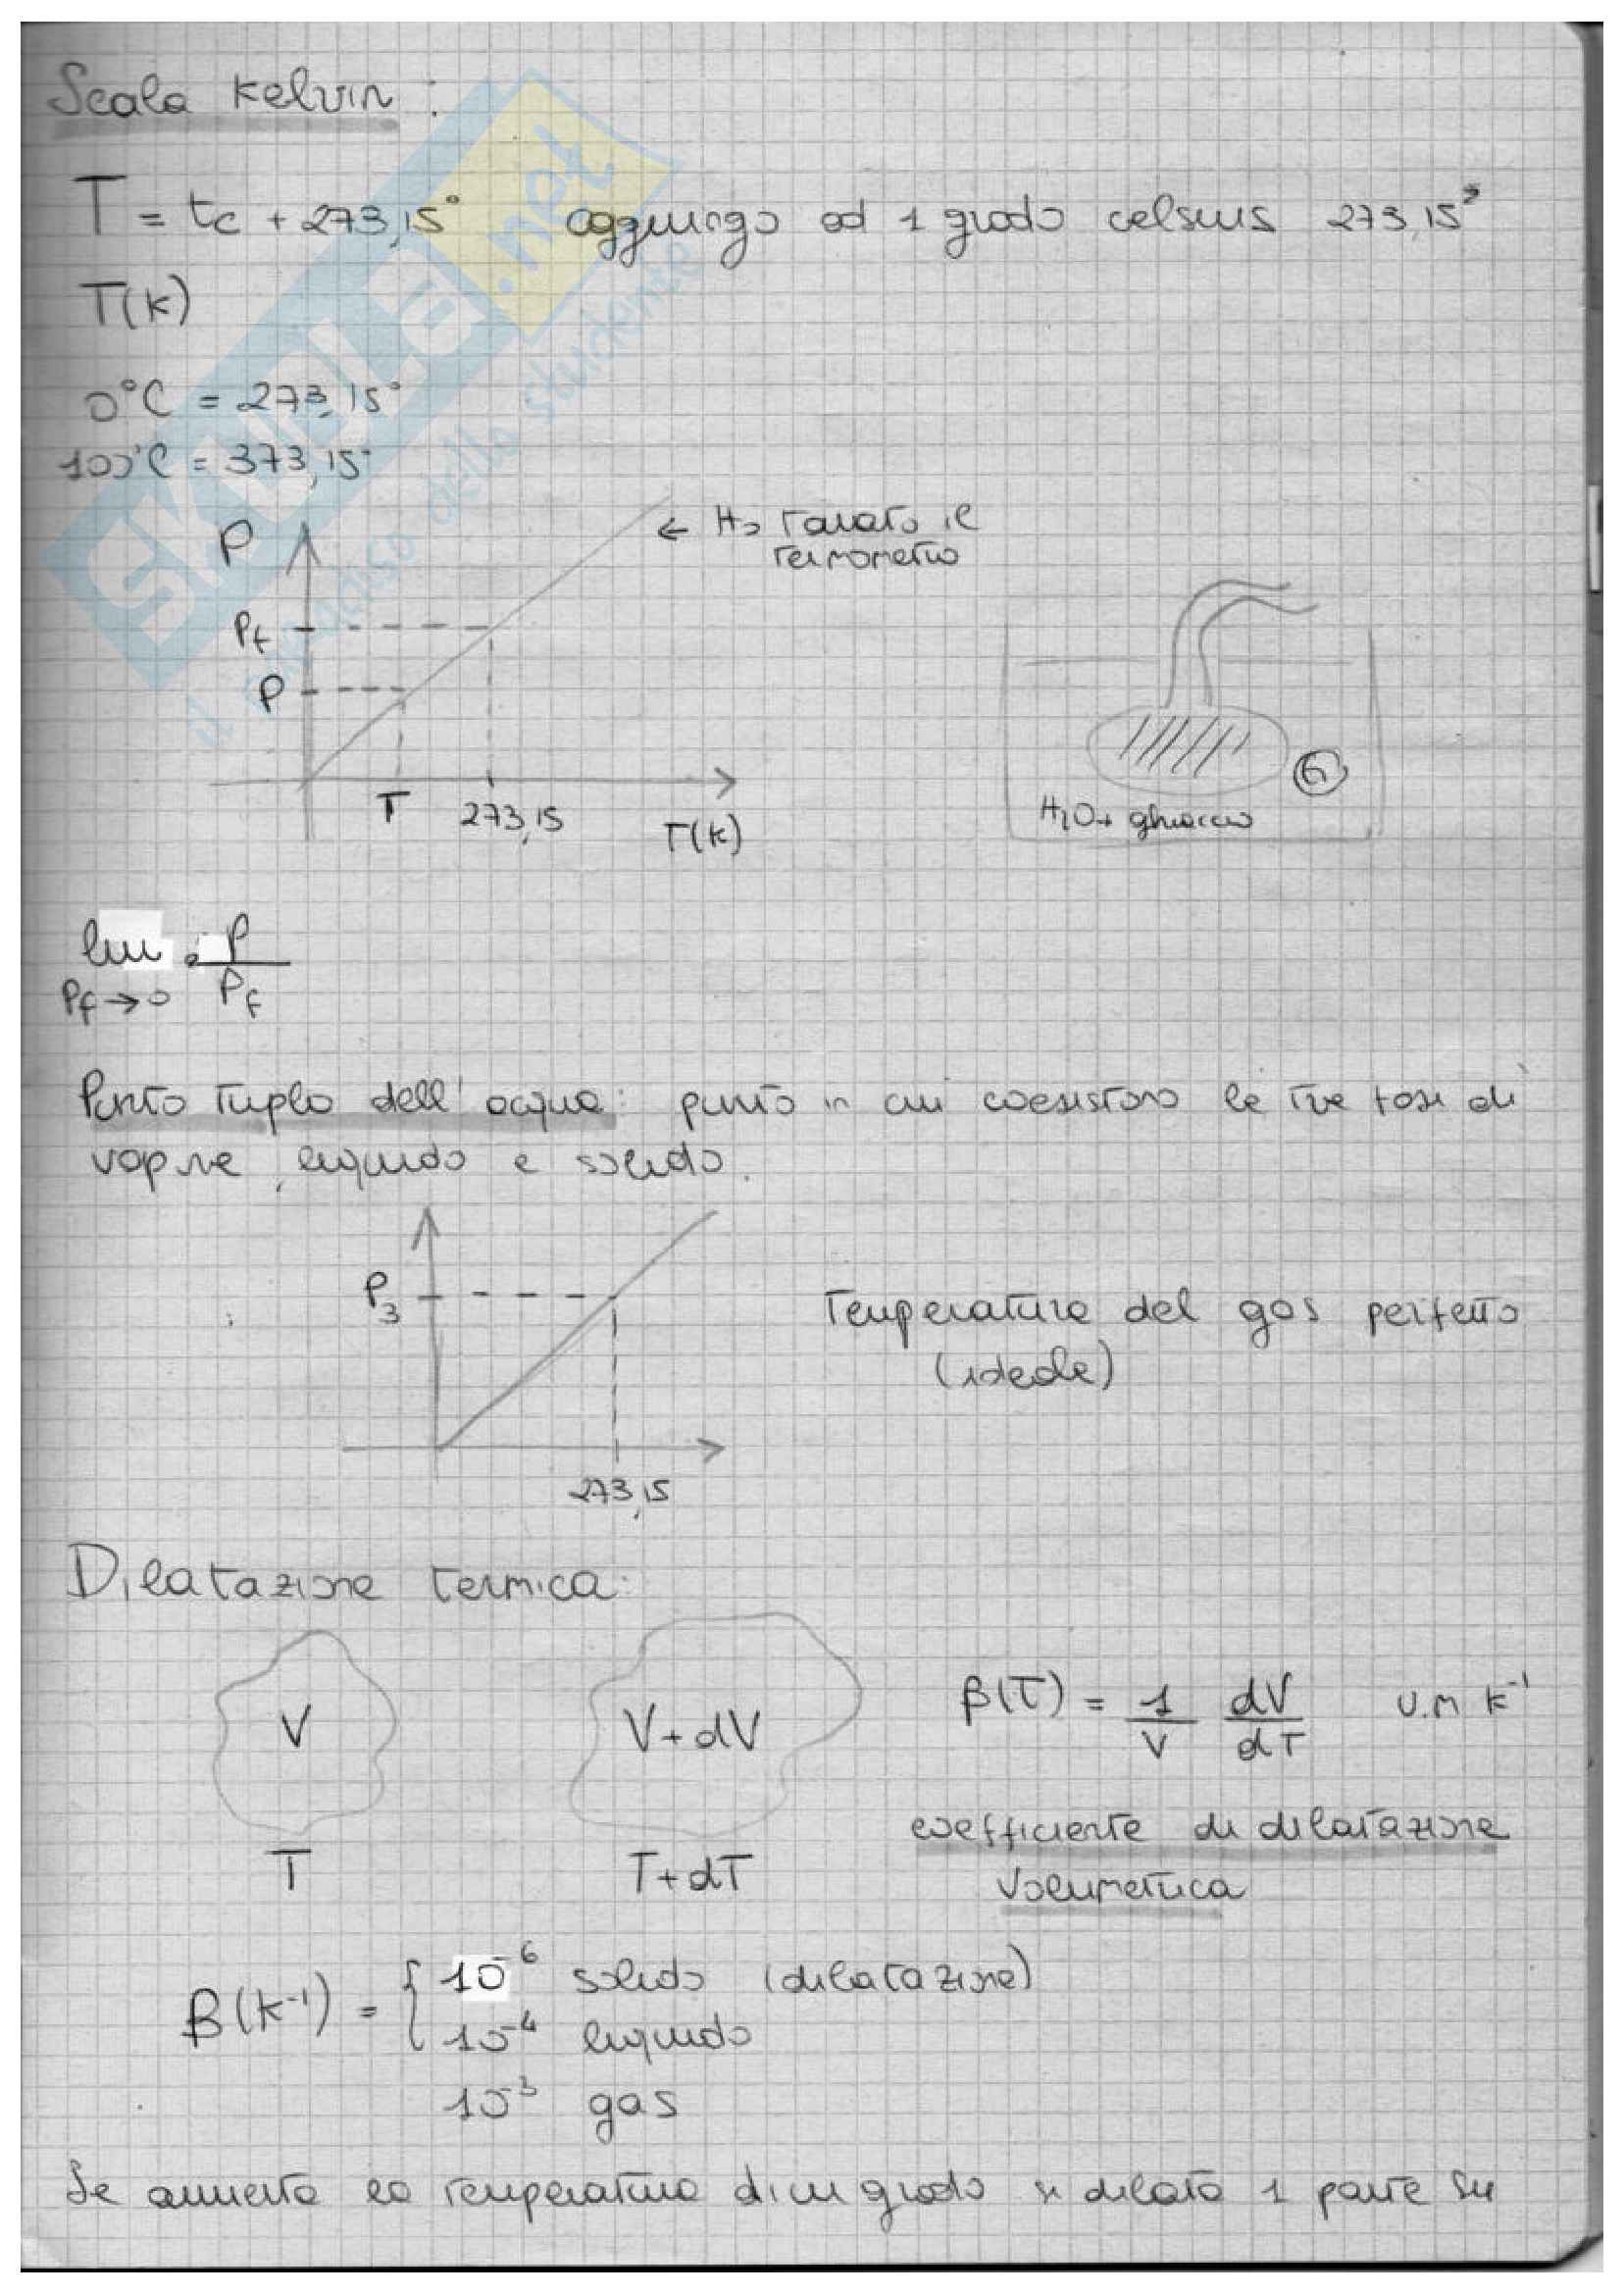 Scala Kelvin :
T = tc + 273,15° aggiungo ad 1 grado celsius 273,15°
T(K)
0°C = 273,15°
100°C = 373,15°
P
← Ho tarato il
termometro
Pf
P
T 273,15 T(K)
G
H2O + ghiaccio
lim P
Pf → 0 Pf
Punto triplo dell'acqua: punto in cui coesistono le tre fasi di
vapore, liquido e solido.
P3
Temperatura del gas perfetto
(ideale)
273,15
Dilatazione termica:
V V+dV β(T) = 1/V dV/dT U.M K⁻¹
T T+dT
coefficiente di dilatazione
Volumetrica
β(K⁻¹) = { 10⁻⁶ solido (dilatazione)
10⁻⁴ liquido
10⁻³ gas
Se aumenta la temperatura di un grado si dilata 1 parte su
SKUOLA.net
il paradiso dello studente